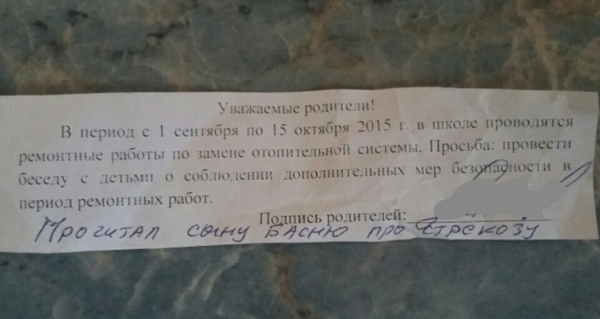 Уважаемые родители!
В период с 1 сентября по 15 октября 2015 г. в школе проводятся
ремонтные работы по замене отопительной системы. Просьба: провести
беседу с детьми о соблюдении дополнительных мер безопасности в
период ремонтных работ.
Подпись родителей:
Прочитал сыну басню про стрекозу